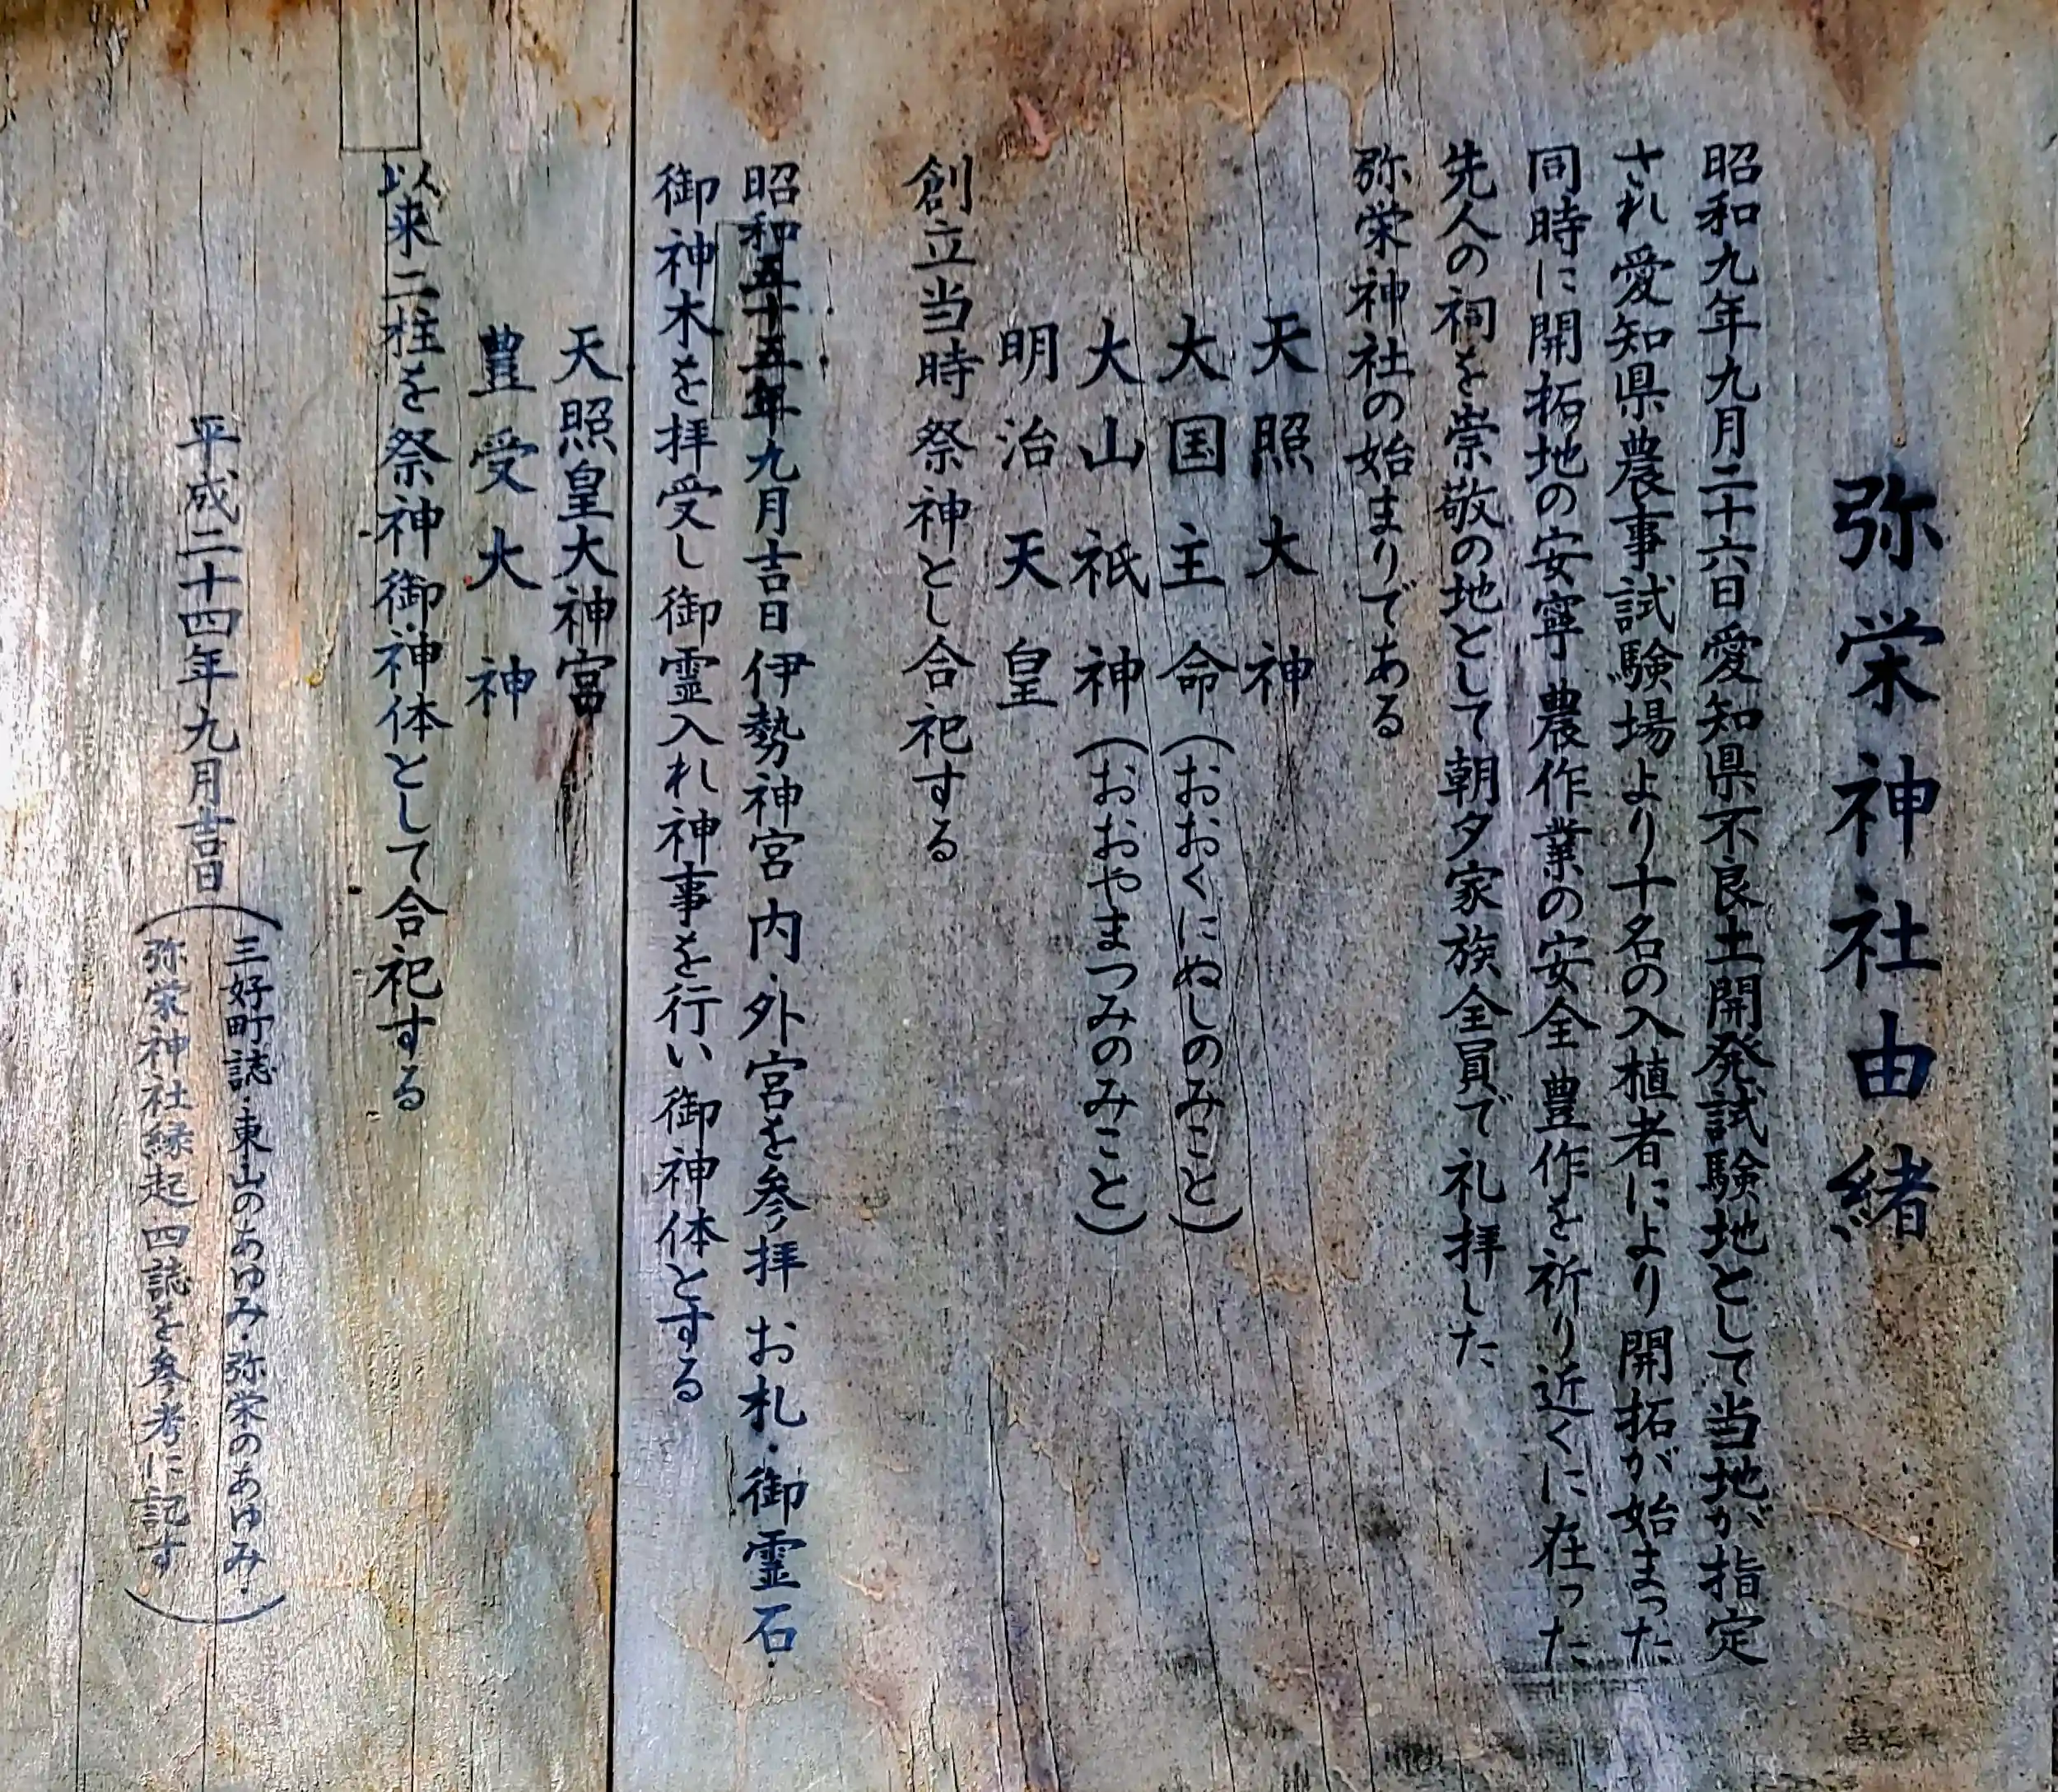 弥栄神社由緒
昭和九年九月二十六日愛知県不良土開発試験地として当地が指定
され愛知県農事試験場より十名の入植者により開拓が始まった
同時に開拓地の安寧農作業の安全豊作を祈り近くに在った
先人の祠を崇敬の地として朝夕家族全員で礼拝した
弥栄神社の始まりである
天照大神
大国主命(おおくにぬしのみこと)
大山祇神(おおやまつみのみこと)
明治天皇
創立当時祭神とし合祀する
昭和五十五年九月吉日伊勢神宮内・外宮を参拝お札・御霊石・
御神木を拝受し御霊入れ神事を行い御神体とする
天照皇大神宮
豊受大神
以来二柱を祭神御神体として合祀する
平成二十四年九月吉日
(三好町誌・東山のあゆみ・弥栄のあゆみ・
弥栄神社縁起四誌を参考に記す)